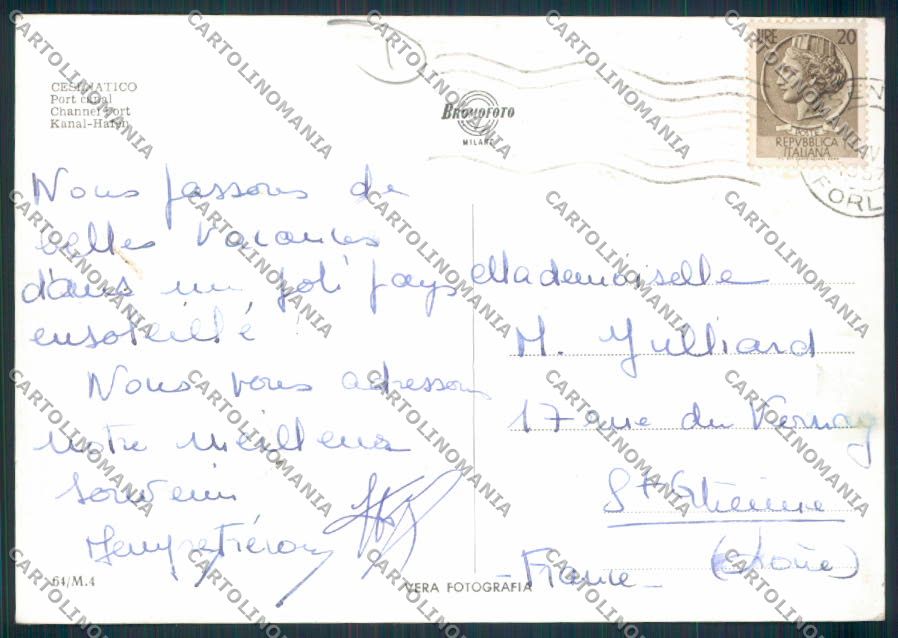 CESENATICO
Port canal
Channel Port
Kanal-Hafen
BROMOFOTO
MILANO
LIRE 20
REPVBBLICA
ITALIANA
FORL
Nous passons de
belles vacances
dans un joli pays
ensoleillé !
Nous vous adressons
notre meilleur
souvenir
Mademoiselle
M. Julliard
17 rue du Vernay
St Etienne
(Loire)
- France -
64/M.4
VERA FOTOGRAFIA
CARTOLINOMANIA